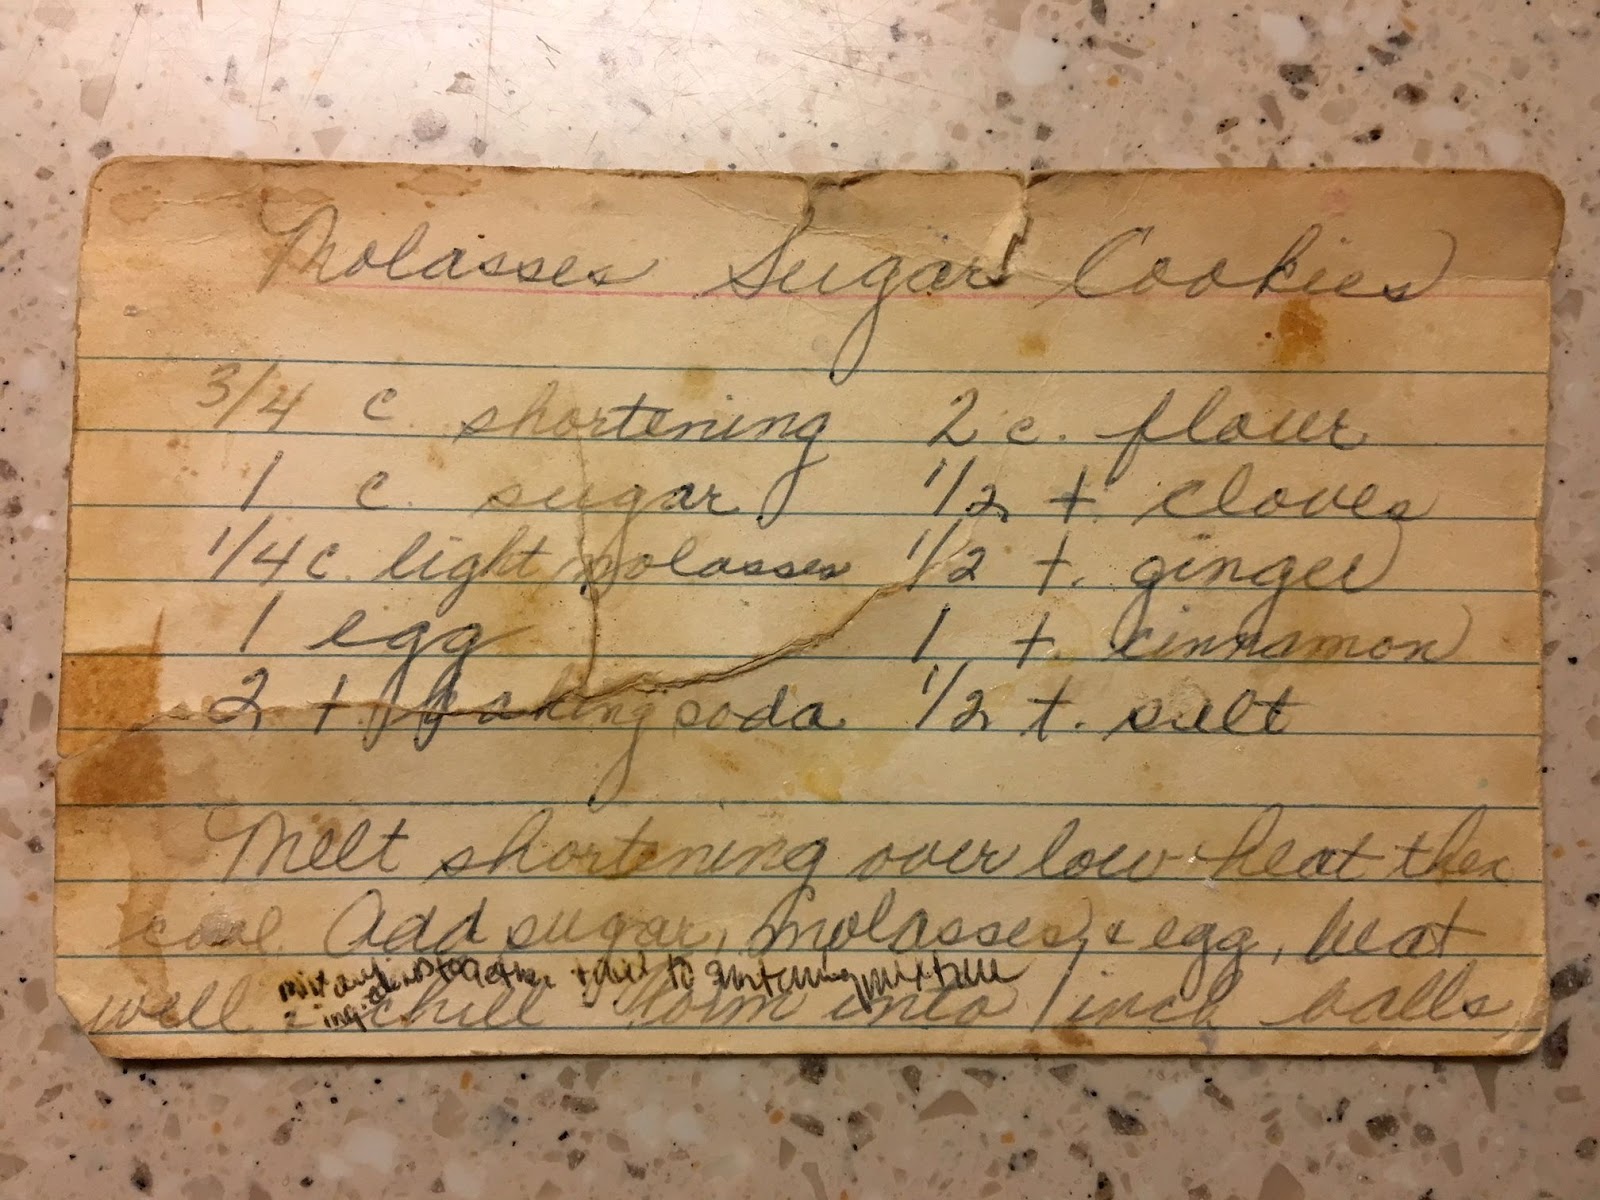 Molasses Sugar Cookies
3/4 c. shortening 2 c. flour
1 c. sugar 1/2 t. cloves
1/4 c. light molasses 1/2 t. ginger
1 egg 1 t. cinnamon
2 t. baking soda 1/2 t. salt
Melt shortening over low heat then
cool. Add sugar, molasses, & egg, beat
mix together + add to shortening mixture
well chill form into 1 inch balls